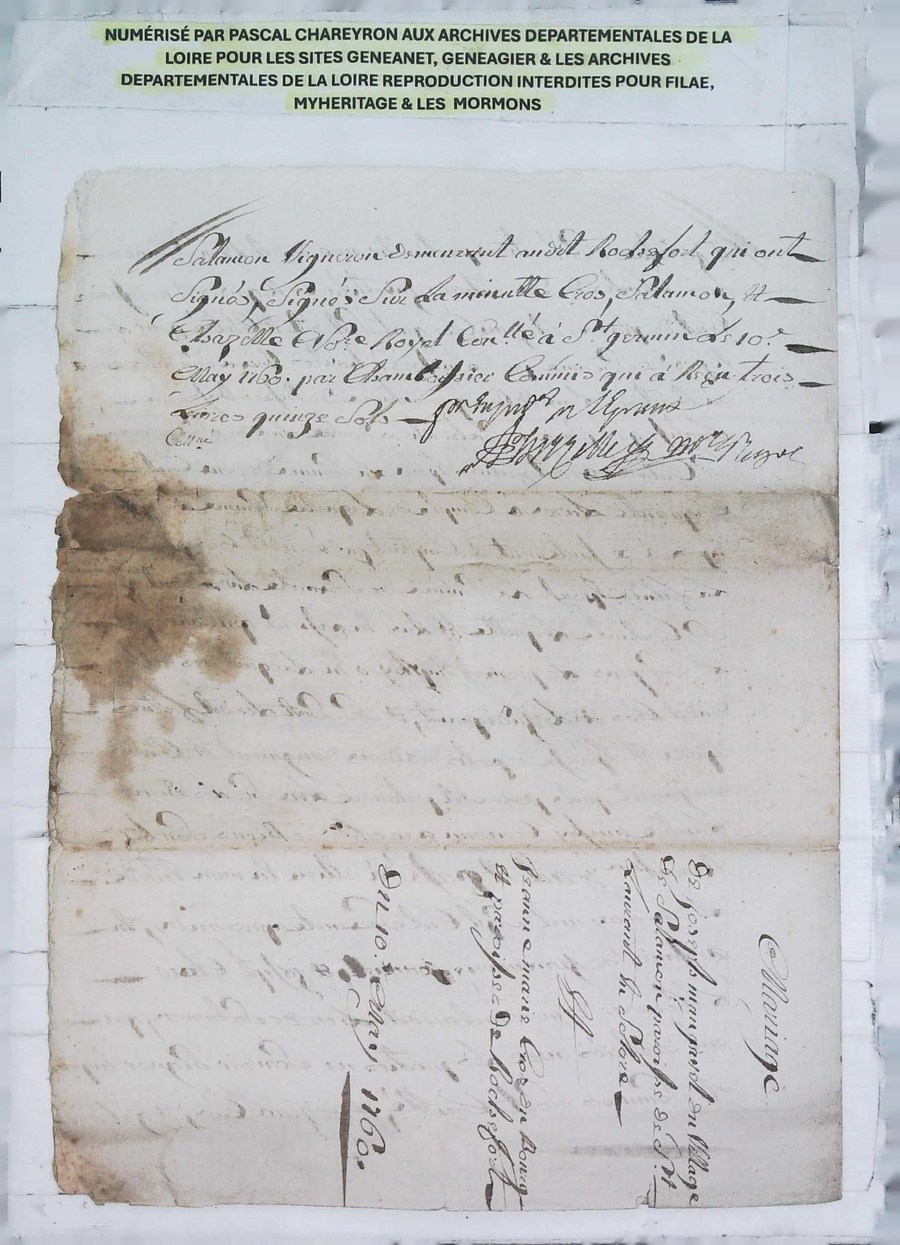 NUMÉRISÉ PAR PASCAL CHAREYRON AUX ARCHIVES DEPARTEMENTALES DE LA
LOIRE POUR LES SITES GENEANET, GENEAGIER & LES ARCHIVES
DEPARTEMENTALES DE LA LOIRE REPRODUCTION INTERDITES POUR FILAE,
MYHERITAGE & LES MORMONS
Salamon Vigneron demeurant audit Rochefort qui ont
Signés, Signés Sur La minutte Cros, Salamon, Et
Chazelle No.re Royal Con.llé à S.t germin Le 10.e
May 1760. par Chamboissier Commis qui à Reçu trois
Livres quinze Sols
Chazelle no.re Royal
Mariage
De Joseph du Village
De Salamon paroisse de S.t
Laurant
Et
Jeanne marie Cros du Bourg
et paroisse De Rochefort
Du 10. May 1760.